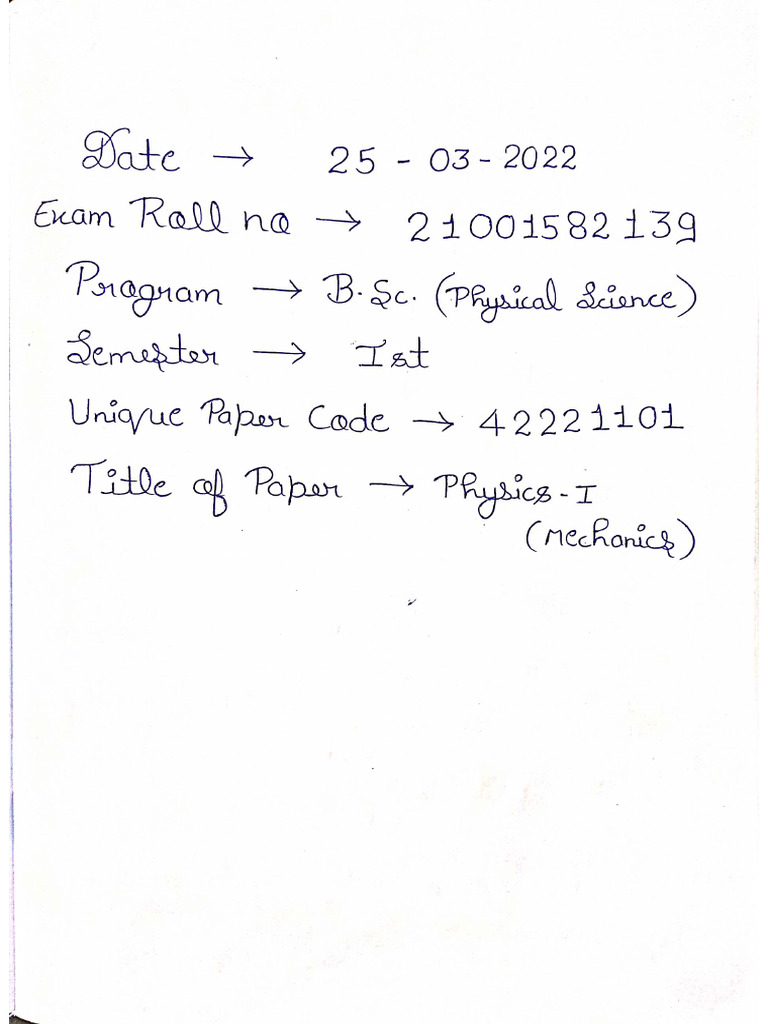 Date → 25 - 03 - 2022
Exam Roll no → 21001582139
Program → B.Sc. (Physical Science)
Semester → Ist
Unique Paper Code → 42221101
Title of Paper → Physics - I
(Mechanics)